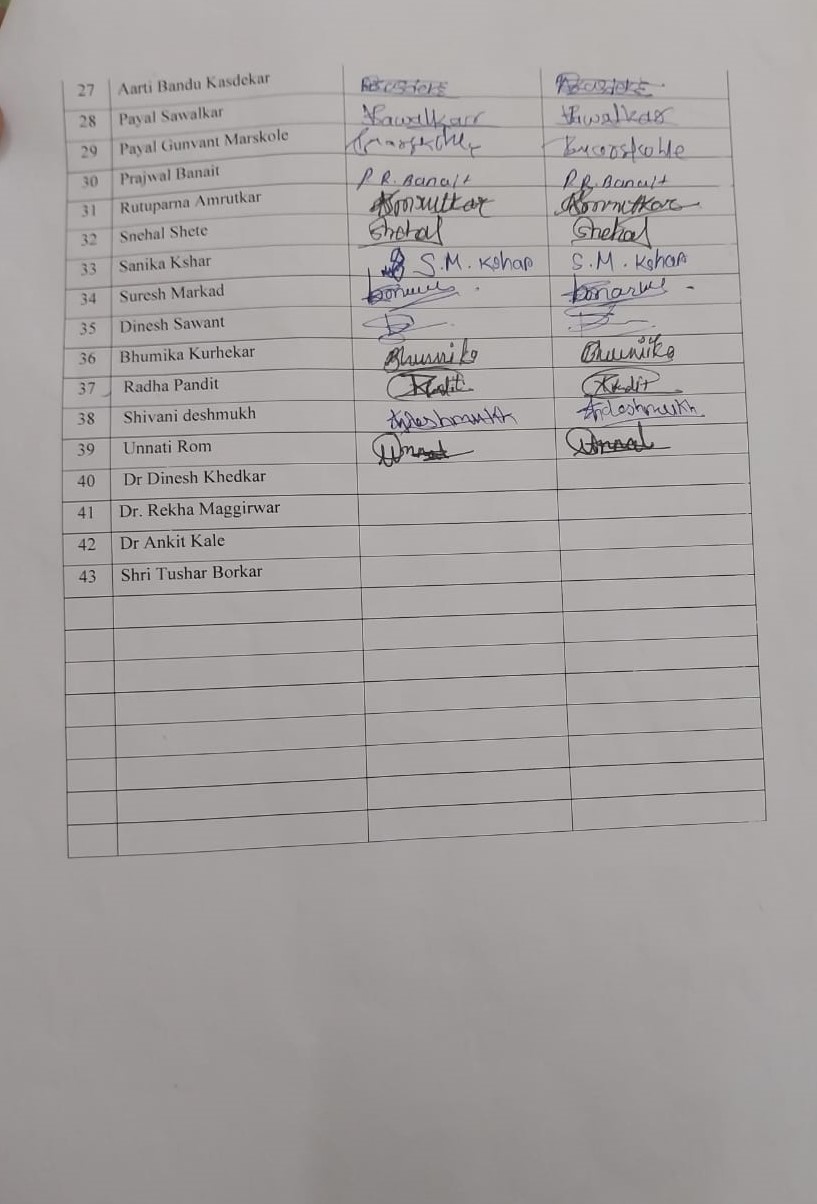 27 Aarti Bandu Kasdekar
28 Payal Sawalkar
29 Payal Gunvant Marskole
30 Prajwal Banait P.R. Banait P.R. Banait
31 Rutuparna Amrutkar
32 Snehal Shete Snehal Snehal
33 Sanika Kshar S.M. Kshar S.M. Kshar
34 Suresh Markad
35 Dinesh Sawant
36 Bhumika Kurhekar Bhumika Bhumika
37 Radha Pandit
38 Shivani deshmukh
39 Unnati Rom
40 Dr Dinesh Khedkar
41 Dr. Rekha Maggirwar
42 Dr Ankit Kale
43 Shri Tushar Borkar